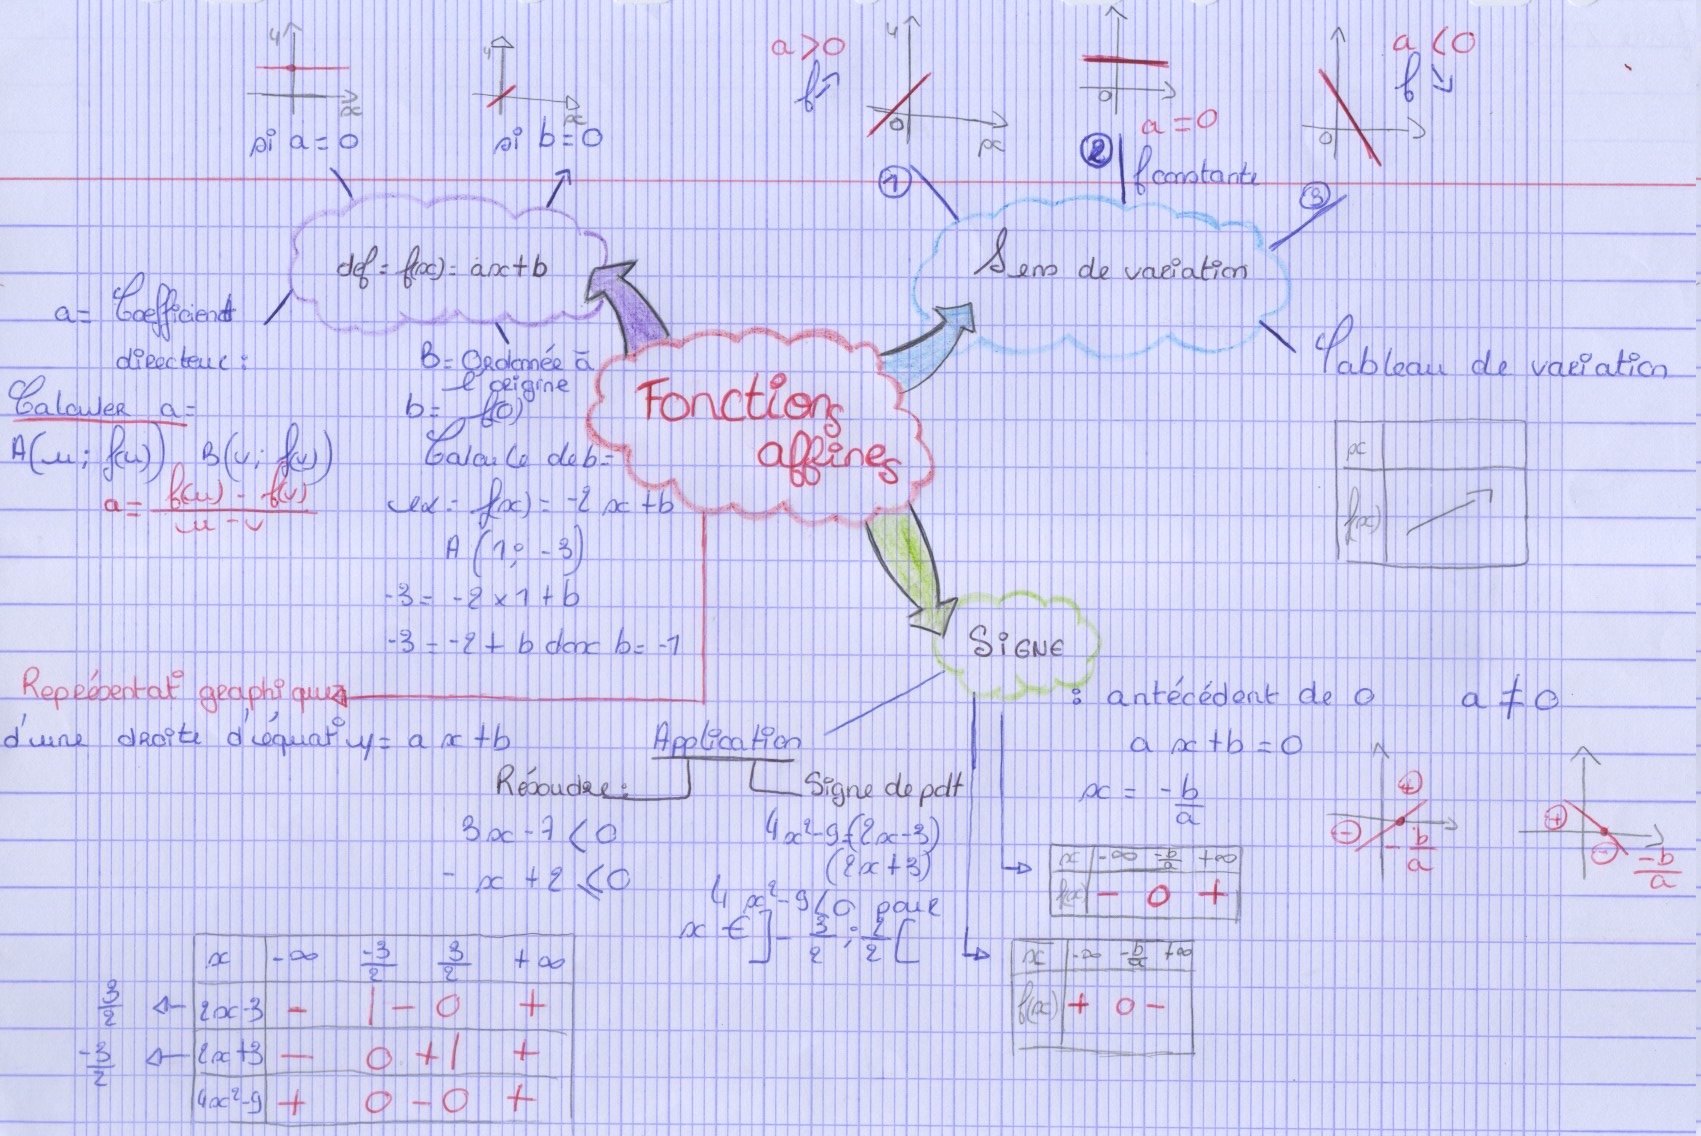 Fonctions
affines
def = f(x) = ax+b
y
x
si a = 0
y
x
si b = 0
a = Coefficient
directeur :
Calculer a =
A(u ; f(u)) B(v ; f(v))
a = f(u) - f(v) / u - v
B = Ordonnée à
l'origine
b = f(0)
Calcule de b =
ex = f(x) = -2x + b
A (1 ; -3)
-3 = -2 × 1 + b
-3 = -2 + b donc b = -1
Représentat° graphique
d'une droite d'équat° y = ax+b
Sens de variation
1
a > 0
f ↗
y
0
x
2
0
a = 0
f constante
3
0
a < 0
f ↘
Tableau de variation
x
f(x)
SIGNE
: antécédent de 0 a ≠ 0
ax+b = 0
x = -b/a
+
-
-b/a
+
-
-b/a
x -∞ -b/a +∞
f(x) - 0 +
x -∞ -b/a +∞
f(x) + 0 -
Application
Résoudre :
3x - 7 < 0
-x + 2 ≤ 0
Signe de pdt
4x²-9=(2x-3)
(2x+3)
4x²-9<0 pour
x € ]-3/2 ; 2/2[
x -∞ -3/2 3/2 +∞
3/2 ← 2x-3 - | - 0 +
-3/2 ← 2x+3 - 0 + | +
4x²-9 + 0 - 0 +